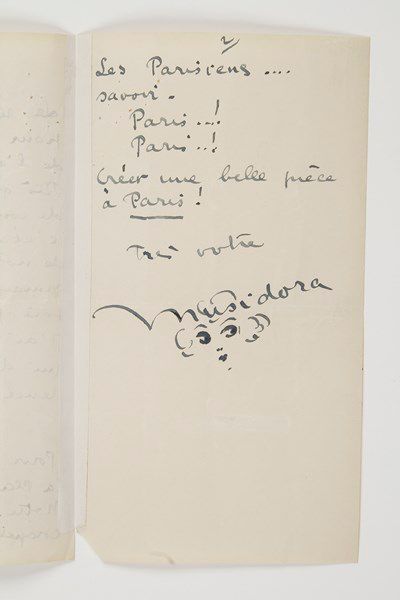 2/
Les Parisiens ....
savoir.
Paris ...!
Paris ..!
Créer une belle pièce
à Paris !
Très votre
Musidora